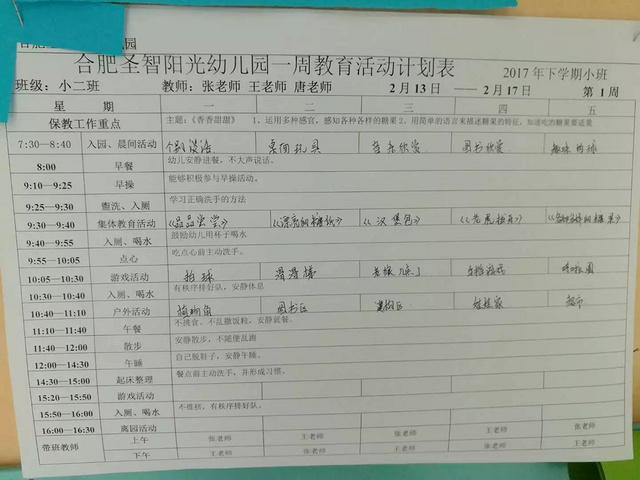 合肥圣智阳光幼儿园一周教育活动计划表
班级：小二班 教师：张老师 王老师 唐老师 2月13日 —— 2月17日 2017年下学期小班 第1周
星 期 一 二 三 四 五
保教工作重点 主题：《香香甜甜》 1、运用多种感官，感知各种各样的糖果2、用简单的语言来描述糖果的特征，知道吃的糖果要适量
7:30—8:40 入园、晨间活动 个别谈话 桌面玩具 音乐欣赏 图书欣赏
8:00 早餐 幼儿安静进餐，不大声说话。
9:10—9:25 早操 能够积极参与早操活动。
9:25—9:30 盥洗、入厕 学习正确洗手的方法
9:30—9:40 集体教育活动 《品品尝尝》 《漂亮的糖纸》 《汉堡包》 《老虎拔牙》
9:40—9:55 入厕、喝水 鼓励幼儿用杯子喝水
9:55—10:05 点心 吃点心前主动洗手。
10:05—10:30 游戏活动 拍球 滑滑梯
10:30—10:40 入厕、喝水 有秩序排好队，安静休息
10:40—11:10 户外活动 植物角 图书区 建构区 娃娃家 超市
11:10—11:40 午餐 不挑食、不乱撒饭粒，安静就餐。
11:40—12:00 散步 安静散步，不随便乱跑
12:00—14:30 午睡 自己脱鞋子，安静午睡。
14:30—15:00 起床整理 餐点前主动洗手，并形成习惯。
15:20—15:50 游戏活动
15:50—16:00 入厕、喝水 不推挤，有秩序排好队。
16:00—16:30 离园活动
带班教师 上午 张老师 王老师 张老师 王老师 张老师
下午 王老师 张老师 王老师 张老师 王老师